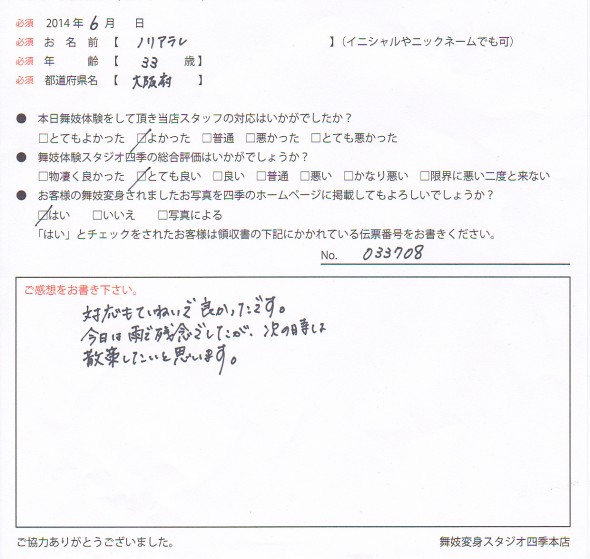 必須 2014年 6月 日
必須 お名前【 ノリアラレ 】(イニシャルやニックネームでも可)
必須 年齢【 33 歳】
必須 都道府県名【 大阪府 】
● 本日舞妓体験をして頂き当店スタッフの対応はいかがでしたか？
□とてもよかった □よかった □普通 □悪かった □とても悪かった
● 舞妓体験スタジオ四季の総合評価はいかがでしょうか？
□物凄く良かった □とても良い □良い □普通 □悪い □かなり悪い □限界に悪い二度と来ない
● お客様の舞妓変身されましたお写真を四季のホームページに掲載してもよろしいでしょうか？
□はい □いいえ □写真による
「はい」とチェックをされたお客様は領収書の下記にかかれている伝票番号をお書きください。
No. 033708
ご感想をお書き下さい。
対応もていねいで良かったです。
今日は雨で残念でしたが、次の時は
散策したいと思います。
ご協力ありがとうございました。
舞妓変身スタジオ四季本店